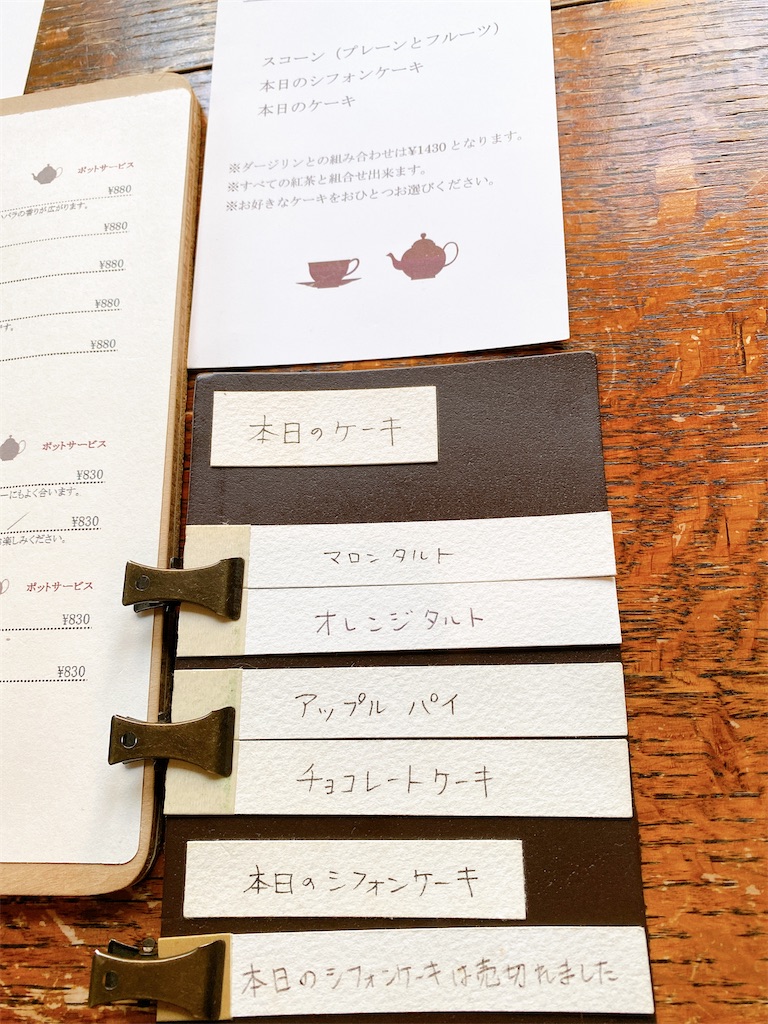 ポットサービス
¥880
バラの香りが広がります。
¥880
¥880
¥880
す。
¥880
ポットサービス
¥830
ーにもよく合います。
¥830
お楽しみください。
ポットサービス
¥830
¥830
スコーン（プレーンとフルーツ）
本日のシフォンケーキ
本日のケーキ
※ダージリンとの組み合わせは¥1430となります。
※すべての紅茶と組合せ出来ます。
※お好きなケーキをおひとつお選びください。
本日のケーキ
マロンタルト
オレンジタルト
アップル パイ
チョコレートケーキ
本日のシフォンケーキ
本日のシフォンケーキは売切れました